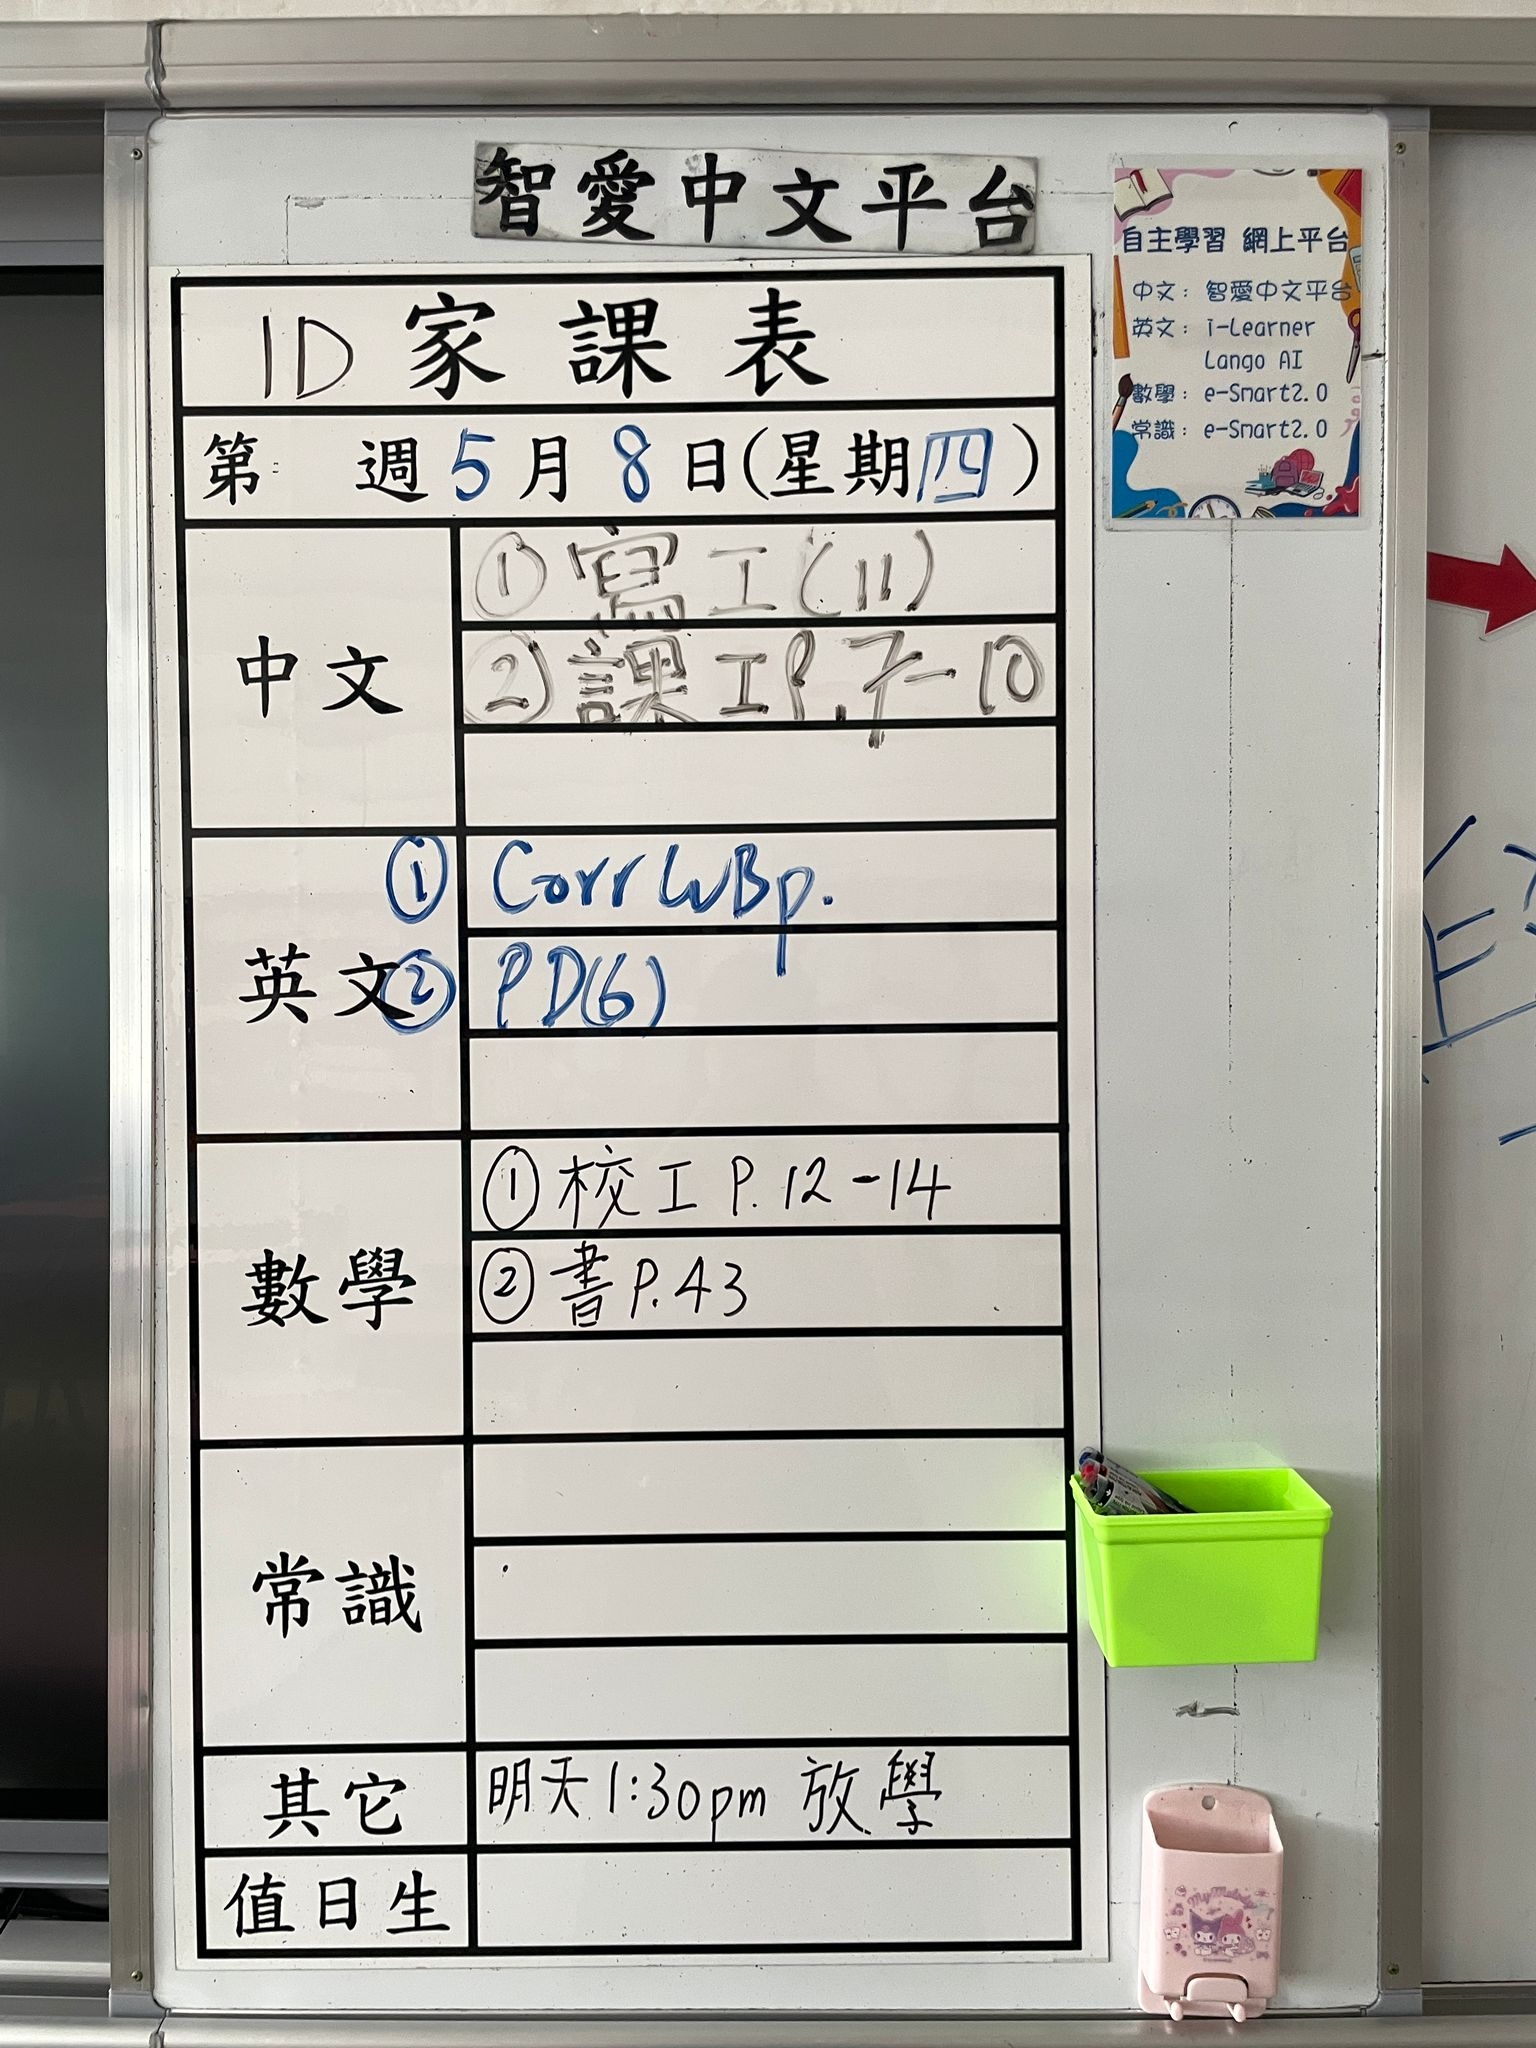 智愛中文平台
1D 家課表
第 週 5月8日(星期四)
中文
① 寫工(11)
② 課工P.7-10
英文
① Corr WBp.
② PD(6)
數學
① 校工 P.12-14
② 書P.43
常識
其它
明天1:30pm 放學
值日生
自主學習 網上平台
中文: 智愛中文平台
英文: i-Learner
Lango AI
數學: e-Smart2.0
常識: e-Smart2.0
My Melody